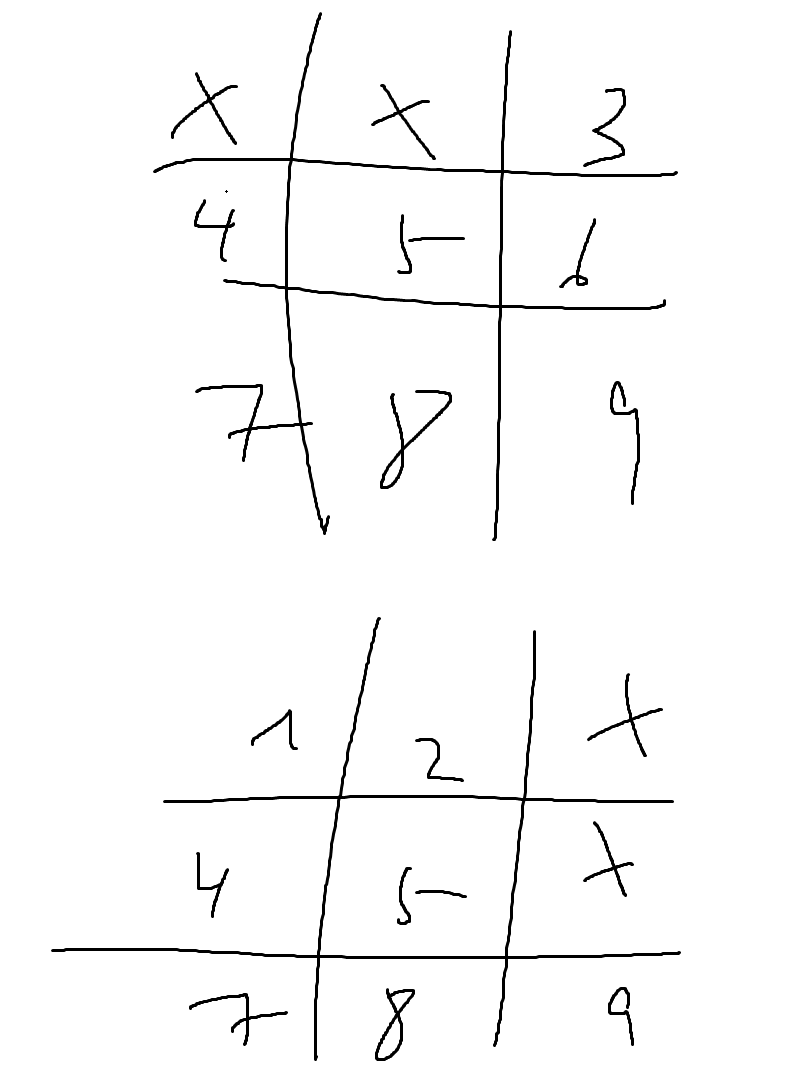 X X 3
4 5 6
7 8 9
1 2 X
4 5 X
7 8 9